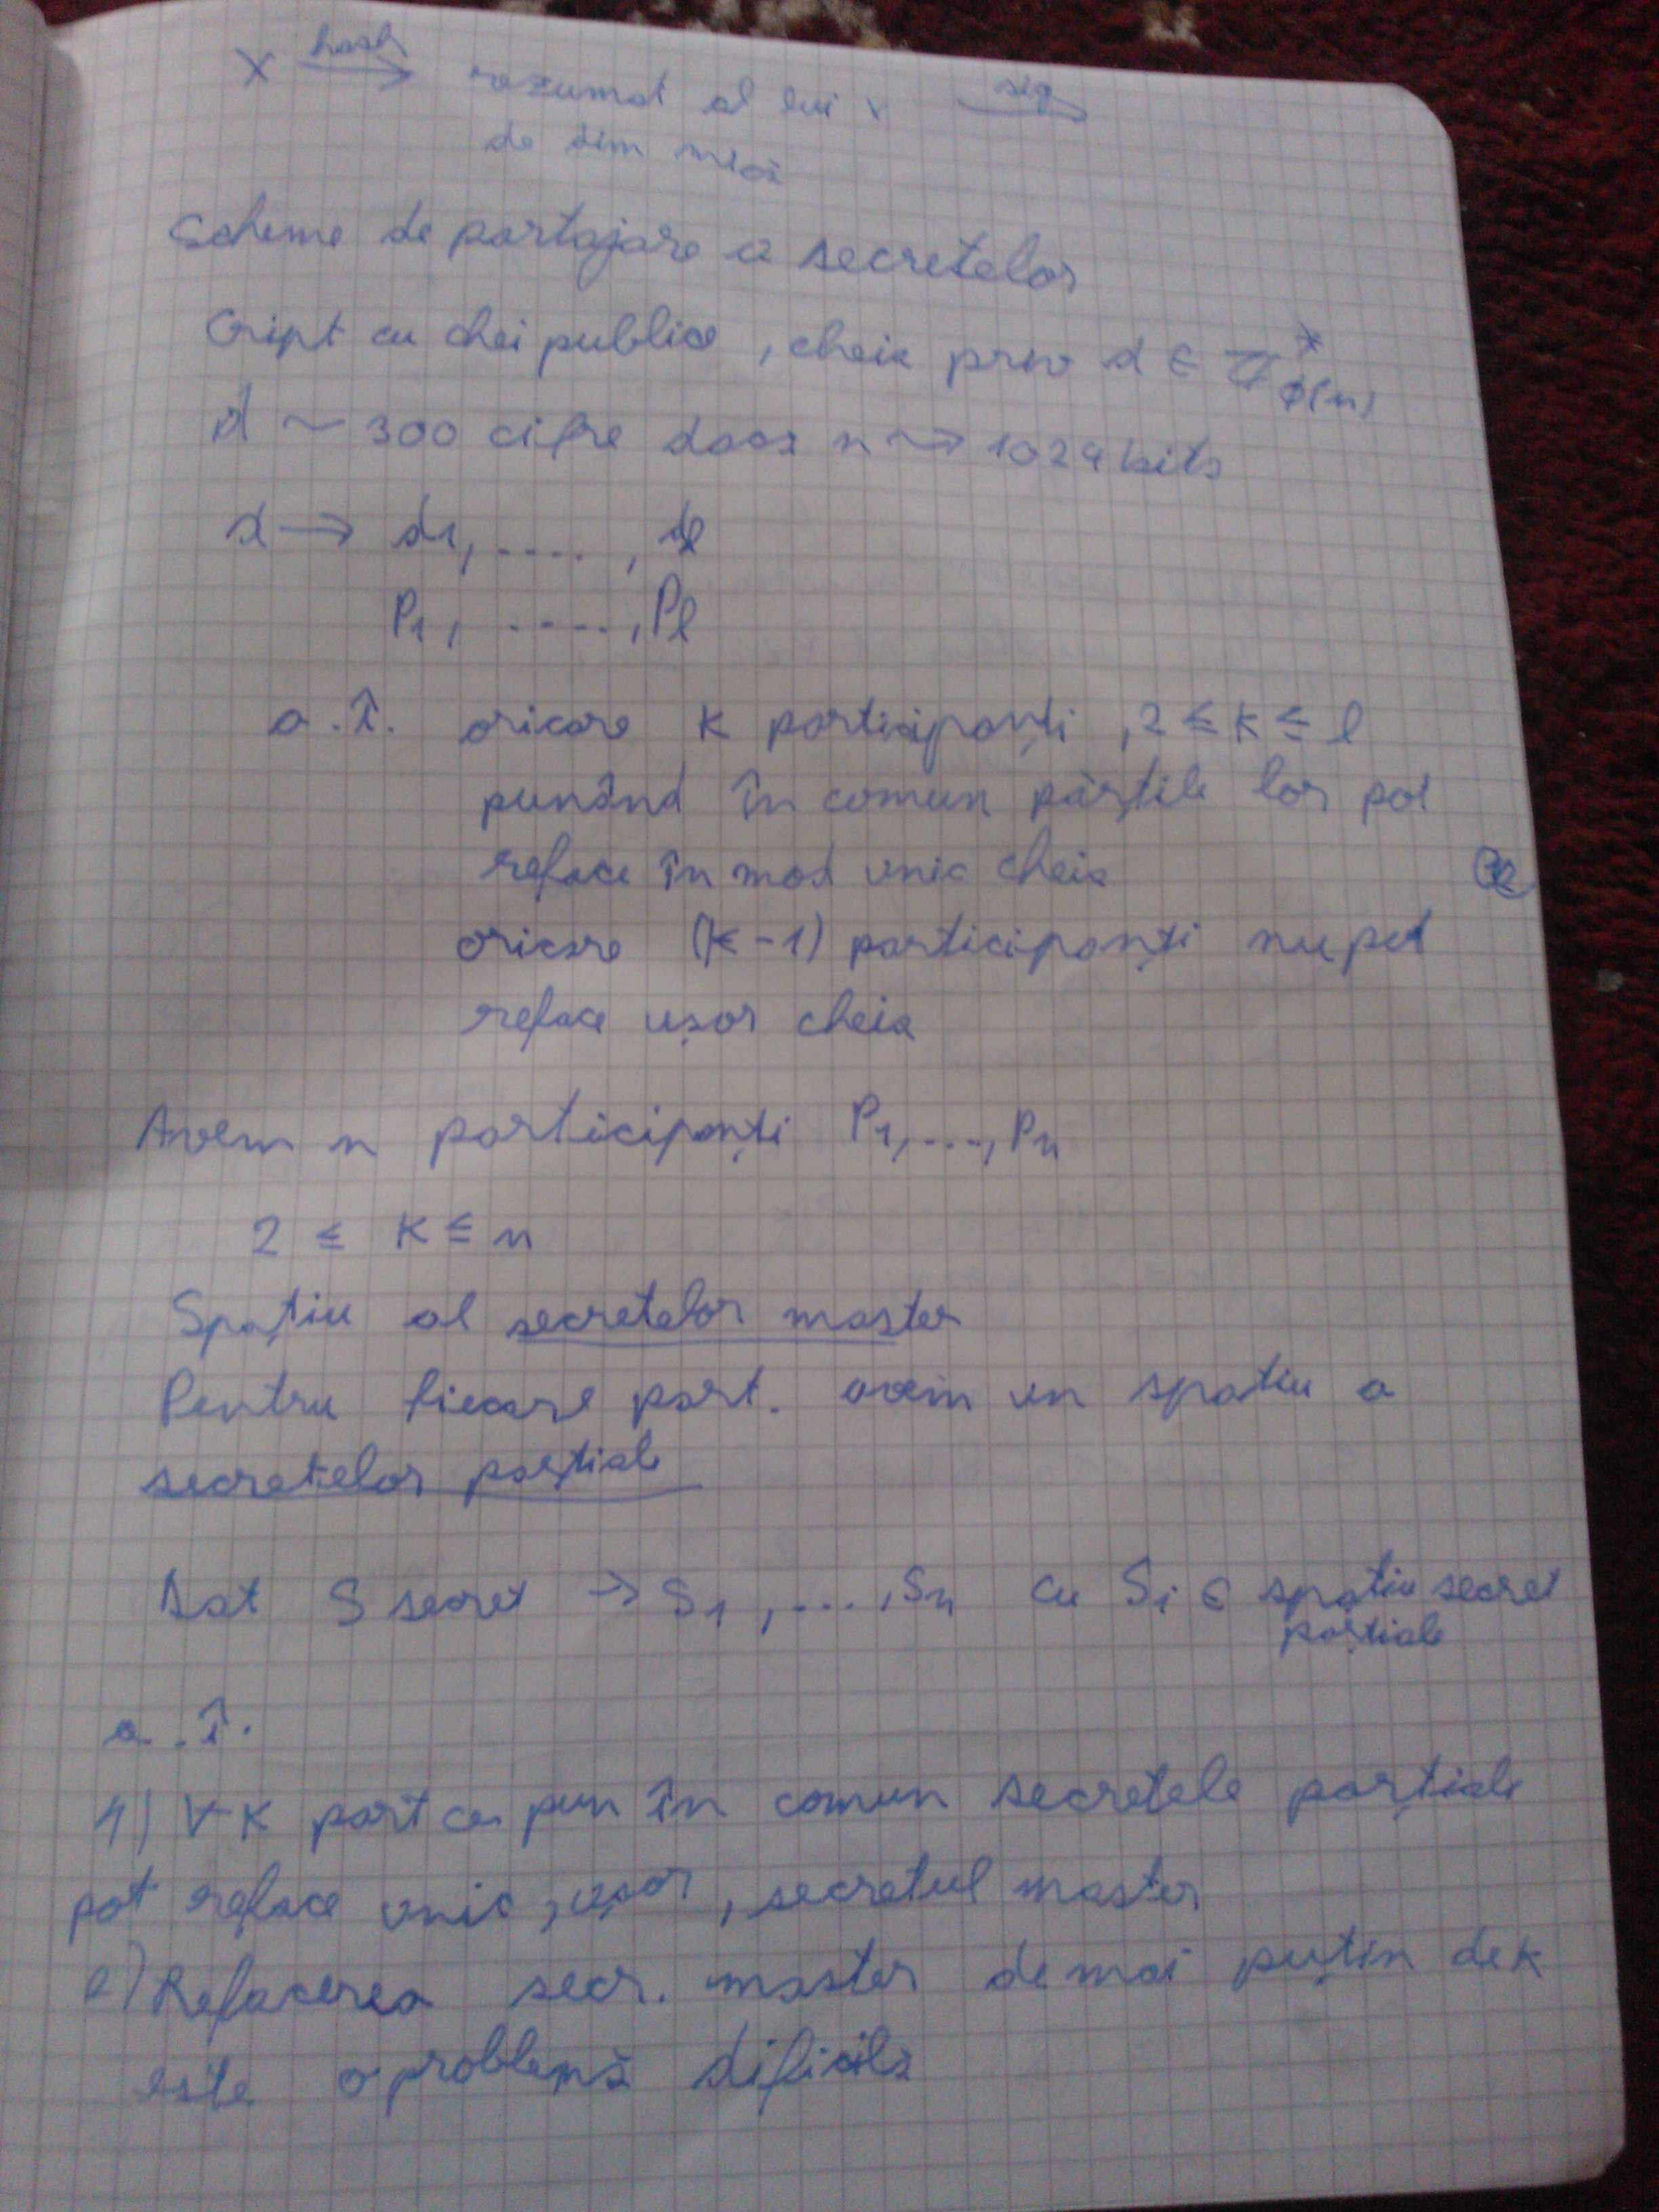 x hash→ rezumat al lui x sig→
de dim mică
Scheme de partajare a secretelor
Cript cu chei publice, cheia priv d ∈ Z*φ(n)
d ~ 300 cifre dacă n ~> 1024 bits
d → d1, ...., dl
P1, ....., Pl
a.î. oricare k participanți, 2 ≤ k ≤ l
punând în comun părțile lor pot
reface în mod unic cheia
oricare (k-1) participanți nu pot
reface ușor cheia
Avem n participanți P1, ..., Pn
2 ≤ k ≤ n
Spațiu al secretelor master
Pentru fiecare part. avem un spatiu a
secretelor parțiale
Dat S secret → S1, ...., Sn cu Si ∈ spațiu secret
parțiale
a.î.
1) ∀ k part ce pun în comun secretele parțiale
pot reface unic, ușor, secretul master
2) Refacerea secr. master de mai puțin de k
este o problemă dificilă